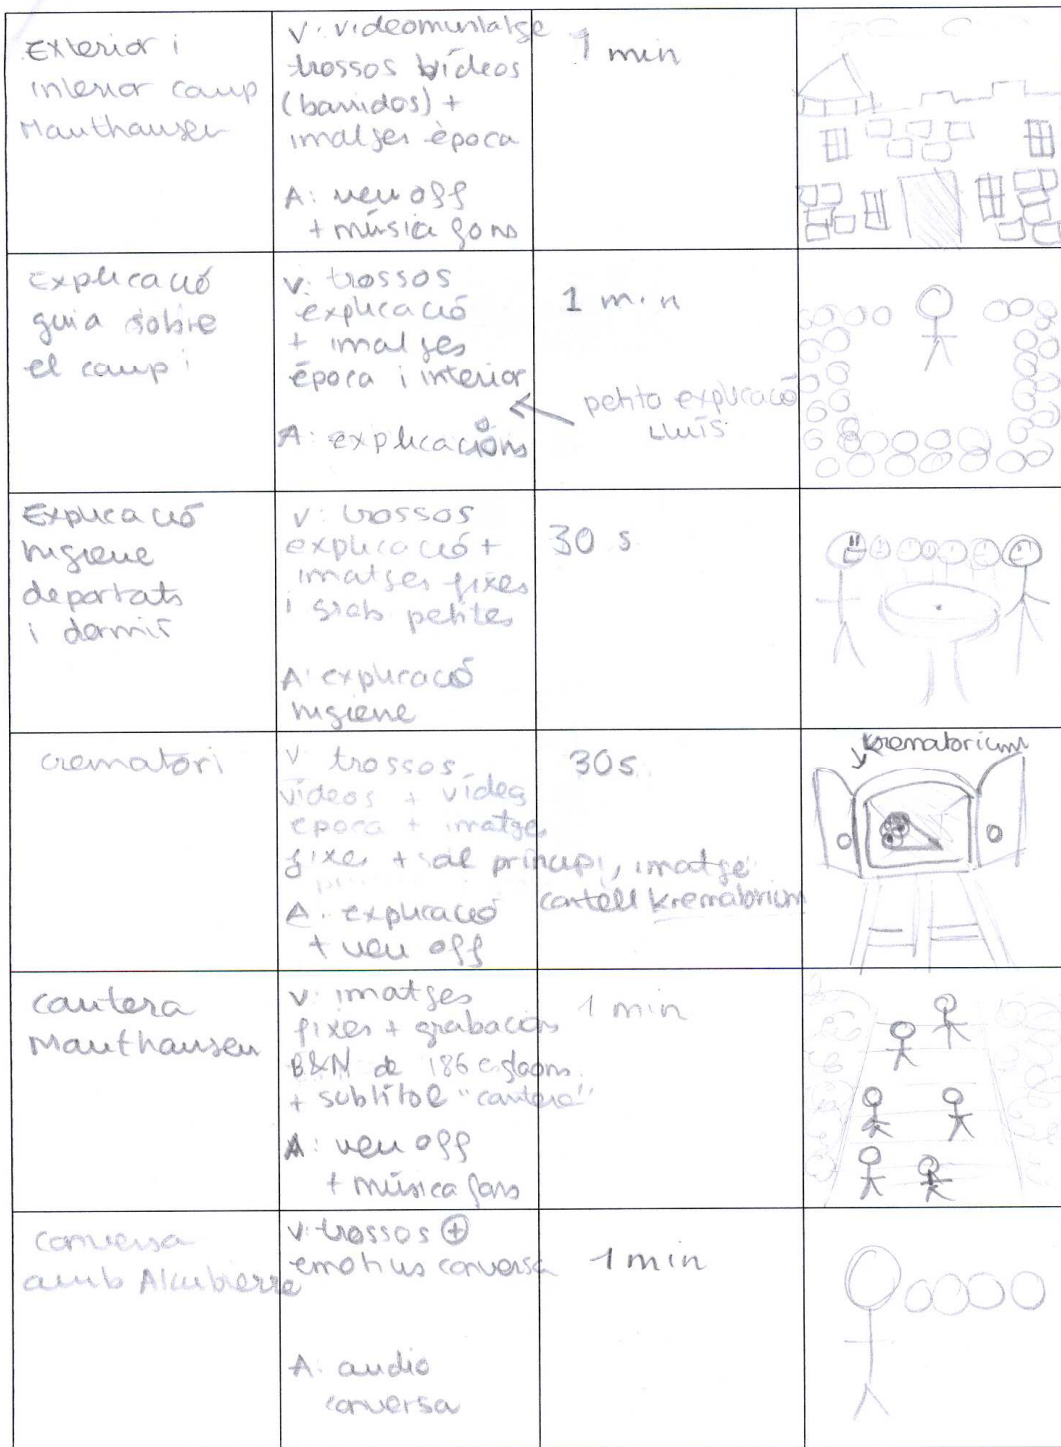 Exterior i
interior camp
Mauthausen
V: videomuntatge
trossos vídeos
(barridos) +
imatges època
A: veu off
+ música fons
1 min
Explicació
guia sobre
el camp i
V: trossos
explicació
+ imatges
època i interior
A: explicacións
1 min
petita explicació
Lluís
Explicació
higiene
deportats
i dormir
V: trossos
explicació +
imatges fixes
i grab petites
A: explicació
higiene
30 s
crematori
V trossos
vídeos + vídeos
època + imatges
fixes + al principi, imatge
cartell krematorium
A. explicació
+ veu off
30 s.
krematorium
cantera
Mauthausen
V: imatges
fixes + grabacións
B&N de 186 esglaons
+ subtítol "cantera"
A: veu off
+ música fons
1 min
conversa
amb Alcubierre
V: trossos +
emotius conversa
A: audio
conversa
1 min